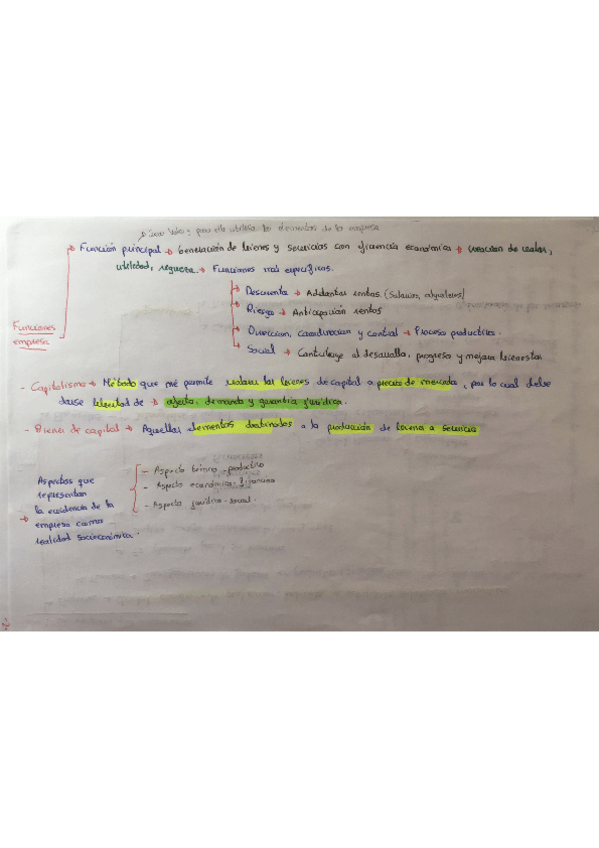 y para ello utiliza los elementos de la empresa
Función principal → Generación de bienes y servicios con eficiencia económica → creación de valor,
utilidad, riqueza → Funciones más específicas.
Descuenta → Adelantar rentas (Salarios, alquileres)
Riesgo → Anticipación rentas
Dirección, coordinación y control → Proceso productivo.
Social → Contribuye al desarrollo, progreso y mejora bienestar
Funciones
empresa
- Capitalismo → Método que me permite valorar los bienes de capital a precio de mercado, por lo cual debe
darse libertad de → oferta, demanda y garantía jurídica.
- Bienes de capital → Aquellos elementos destinados a la producción de bienes o servicios
Aspectos que
representan
la existencia de la
→ empresa como
realidad socioeconómica.
- Aspecto técnico-productivo
- Aspecto económico-financiero
- Aspecto jurídico-social.